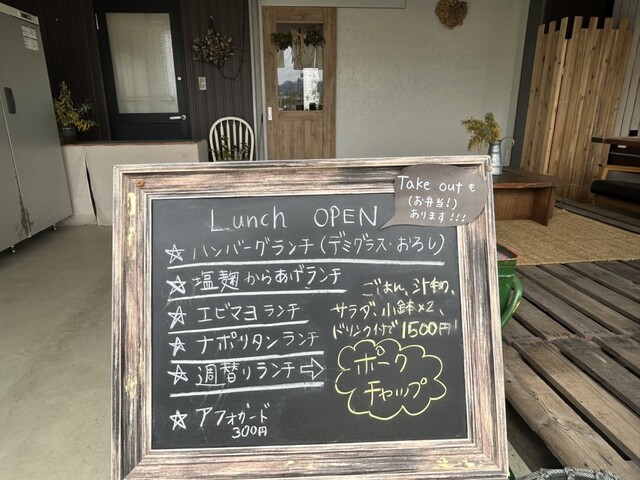 Lunch OPEN
Take outも
(お弁当!)
あります!!!
☆ ハンバーグランチ(デミグラス・おろし)
☆ 塩麹からあげランチ
☆ エビマヨランチ
☆ ナポリタンランチ
☆ 週替りランチ⇨
ごはん、汁物、
サラダ、小鉢×2、
ドリンク付で1500円!
ポーク
チャップ
☆ アフォガード
300円